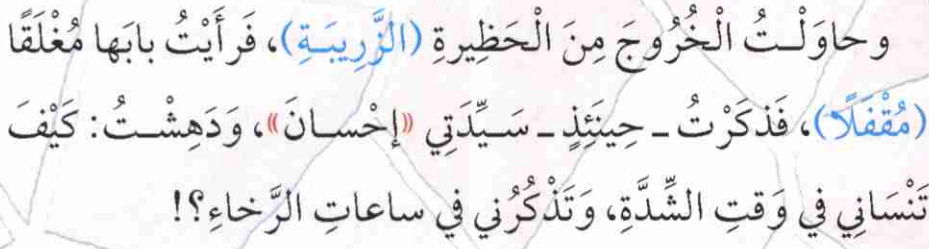 وحاوَلْتُ الْخُرُوجَ مِنَ الْحَظِيرةِ (الزَّرِيبَةِ)، فَرأَيْتُ بابَها مُغْلَقًا
(مُقْفَلًا)، فَذَكَرْتُ ـ حِينَئِذٍ ـ سَيِّدَتِي «إِحْسانَ»، وَدَهِشْتُ: كَيْفَ
تَنْسَانِي في وَقتِ الشِّدَّةِ، وَتَذْكُرُني في ساعاتِ الرَّخاءِ؟!